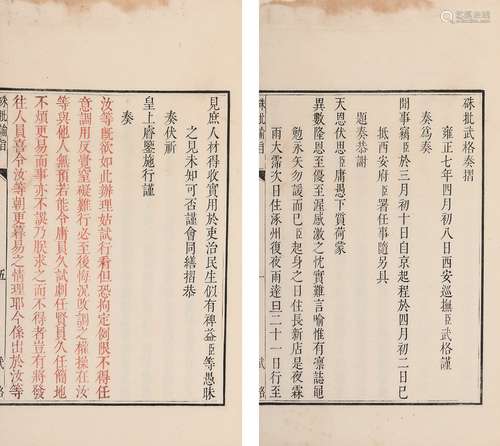 硃批武格奏摺
雍正七年四月初八日西安巡撫臣武格謹
奏爲奏
聞事竊臣於三月初十日自京起程於四月初二日已
抵西安府臣署任事隨另具
題奏恭謝
天恩伏思臣庸愚下質荷蒙
異數隆恩至優至渥感激之忱實難言喻惟有凜誌黽
勉永矢勿諼而已臣起身之日住長新店是夜霖
雨大霈次日住涿州復夜雨達旦二十一日行至
硃批諭旨
武格
見庶人材得收實用於吏治民生似有裨益臣等愚昧
之見未知可否謹會同繕摺恭
奏伏祈
皇上睿鑒施行謹
奏
汝等旣欲如此辦理姑試行看但恐拘定例限不得任
意調用反覺窒礙難行必至後悔況改調之權操在汝
等與他人無預若能令庸員久試劇任賢員久任簡地
不煩更易而事亦不誤乃朕求之而不得者豈有將發
往人員喜令汝等朝更暮易之情理耶今係出於汝等
硃批諭旨
五
武格